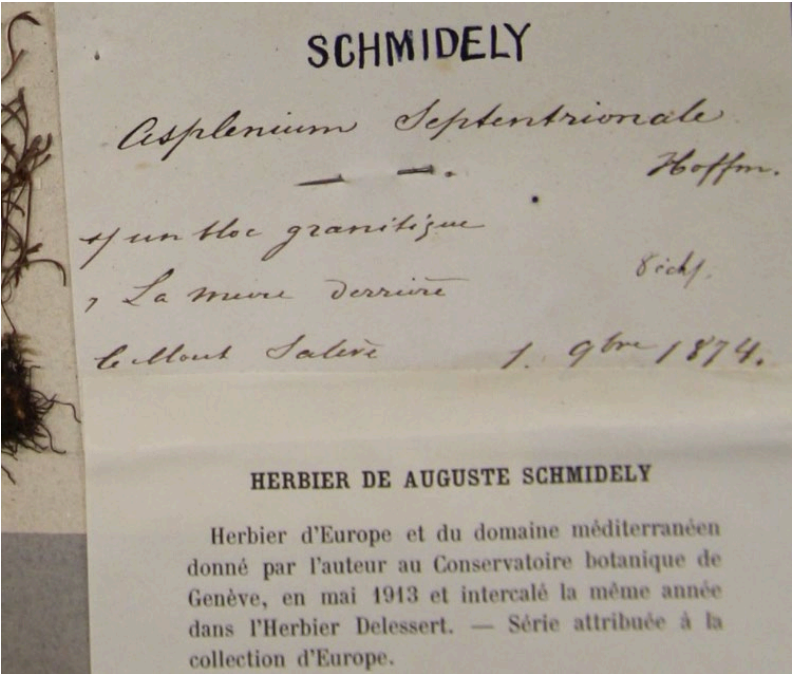 SCHMIDELY
Asplenium Septentrionale
— —.
Hoffm.
s/ un bloc granitique
, La mure derrière
le Mont Salève 1. 9bre 1874.
HERBIER DE AUGUSTE SCHMIDELY
Herbier d'Europe et du domaine méditerranéen
donné par l'auteur au Conservatoire botanique de
Genève, en mai 1913 et intercalé la même année
dans l'Herbier Delessert. — Série attribuée à la
collection d'Europe.